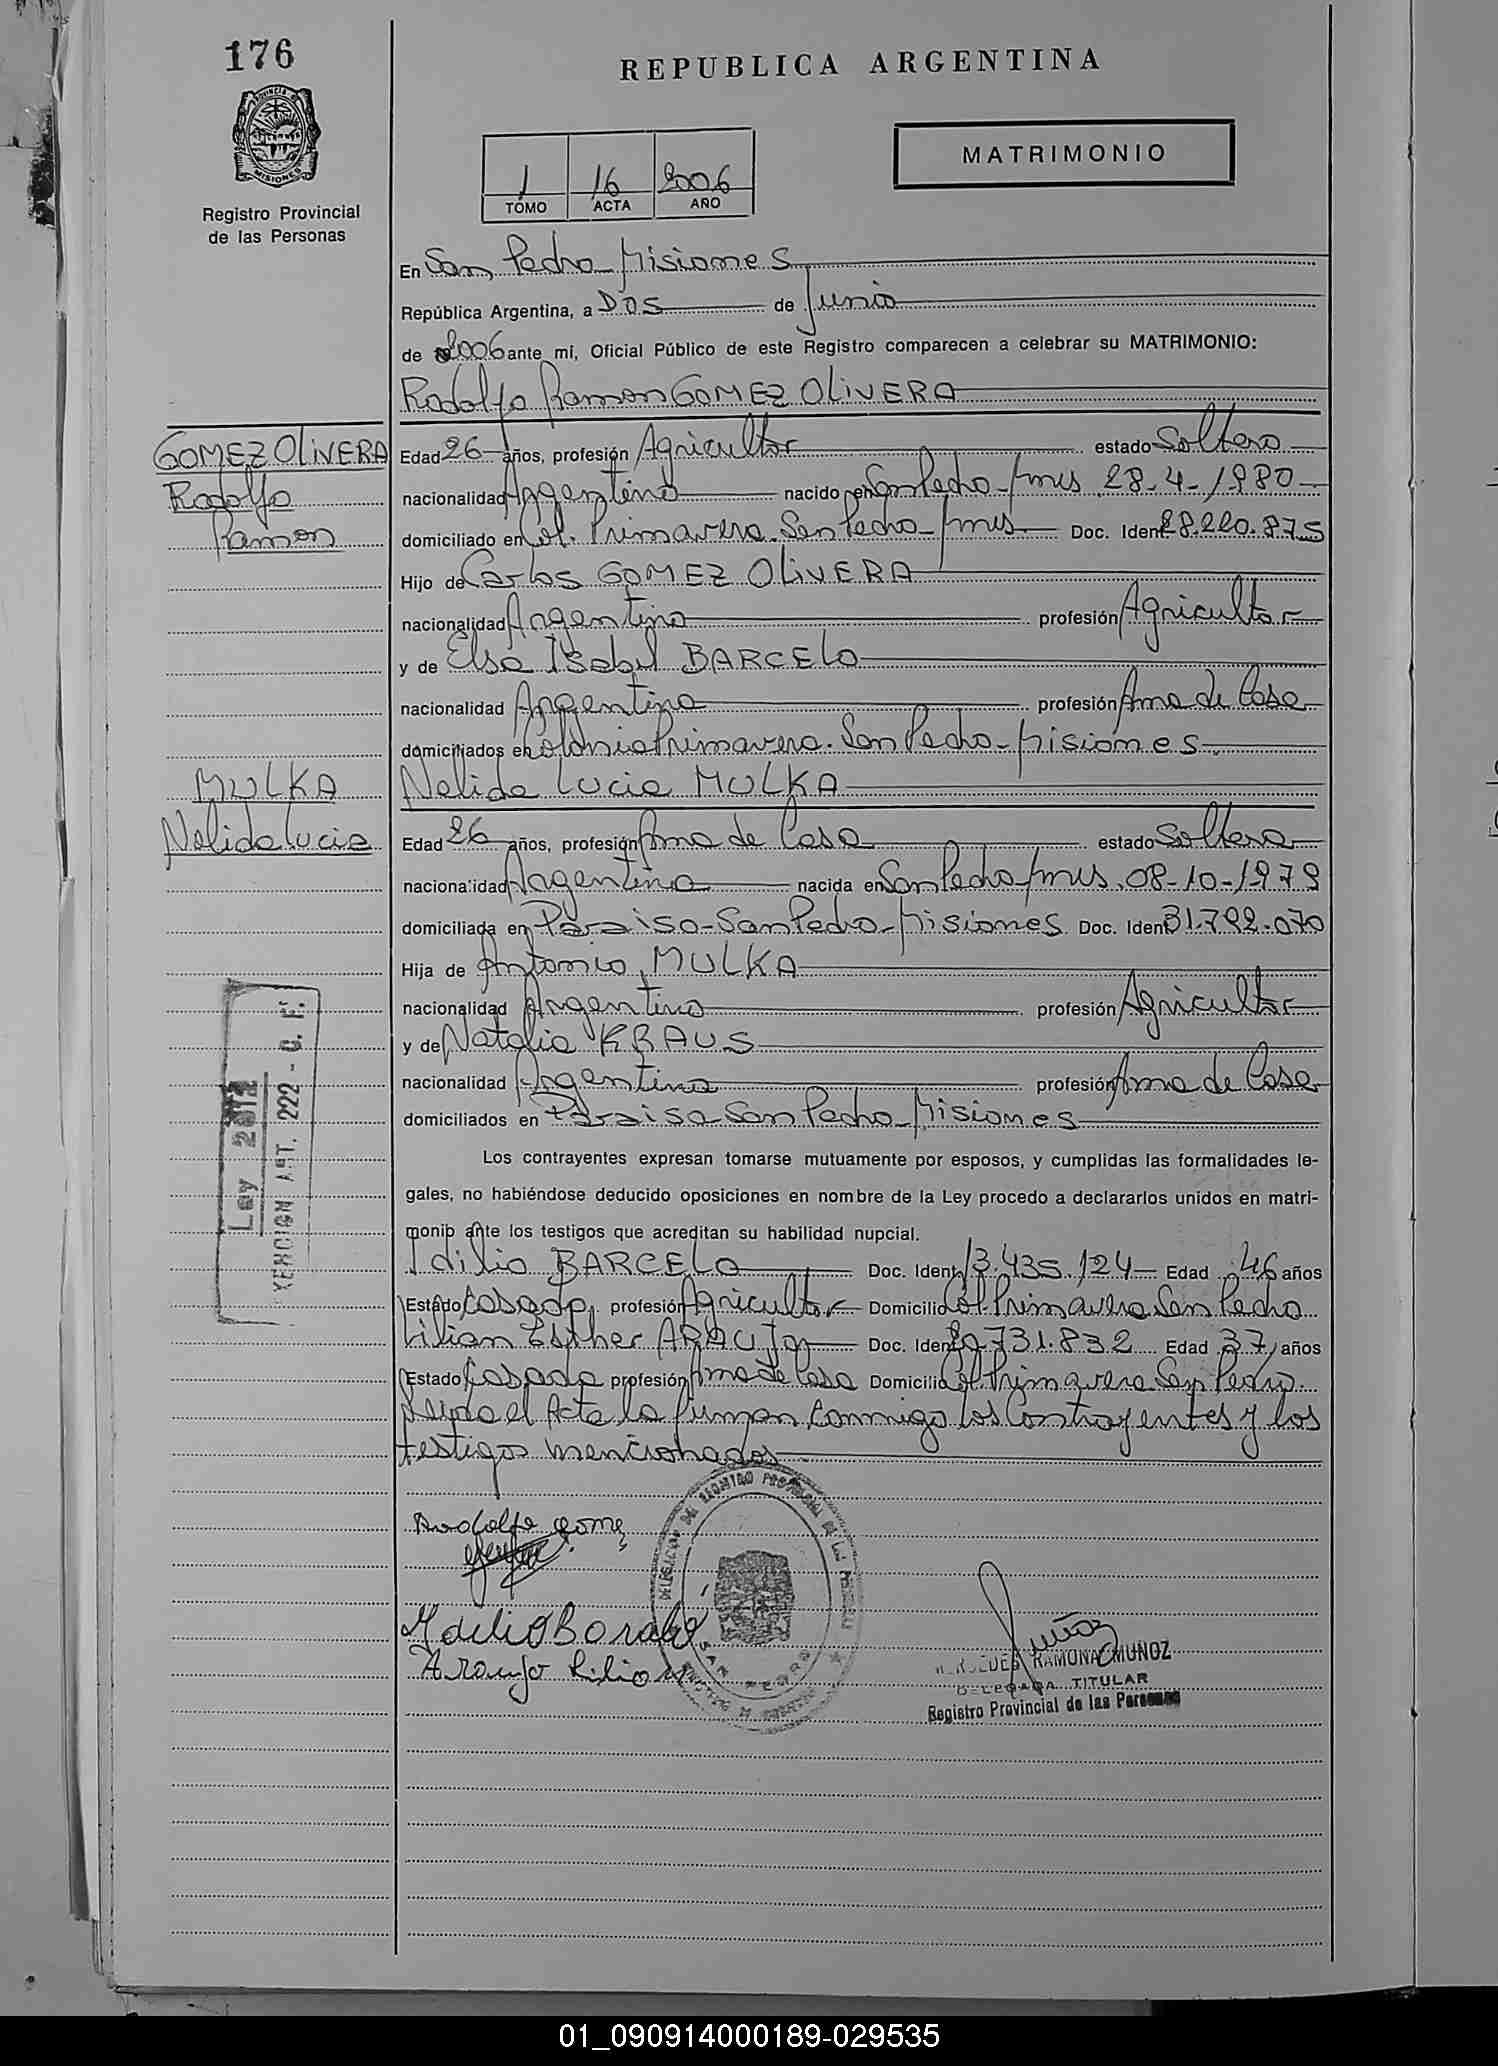 176
REPUBLICA ARGENTINA
PROVINCIA DE
MISIONES
Registro Provincial
de las Personas
1 16 2006
TOMO ACTA AÑO
MATRIMONIO
En San Pedro Misiones
República Argentina, a DOS de Junio
de 2006 ante mí, Oficial Público de este Registro comparecen a celebrar su MATRIMONIO:
Rodolfo Ramon GOMEZ OLIVERA
GOMEZ OLIVERA
Rodolfo
Ramon
Edad 26 años, profesión Agricultor estado Soltero
nacionalidad Argentino nacido en San Pedro - Mnes 28-4-1980
domiciliado en Col. Primavera. San Pedro - Mnes Doc. Ident 28.220.875
Hijo de Carlos GOMEZ OLIVERA
nacionalidad Argentino profesión Agricultor
y de Elsa Isabel BARCELO
nacionalidad Argentina profesión Ama de Casa
domiciliados en Colonia Primavera. San Pedro - Misiones.
MULKA
Nelida Lucia
Nelida Lucia MULKA
Edad 26 años, profesión Ama de Casa estado Soltera
nacionalidad Argentina nacida en San Pedro - Mnes. 08-10-1979
domiciliada en Paraiso - San Pedro - Misiones Doc. Ident 31.792.070
Hija de Antonio MULKA
nacionalidad Argentino profesión Agricultor
y de Natalia KRAUS
nacionalidad Argentina profesión Ama de Casa
domiciliados en Paraiso San Pedro - Misiones
Ley
XENCION ART. 222 - C. F.
Los contrayentes expresan tomarse mutuamente por esposos, y cumplidas las formalidades le-
gales, no habiéndose deducido oposiciones en nombre de la Ley procedo a declararlos unidos en matri-
monio ante los testigos que acreditan su habilidad nupcial.
Idilio BARCELO Doc. Ident 13.435.124 Edad 46 años
Estado Casado, profesión Agricultor Domicilio Col. Primavera San Pedro
Lilian Esther ARAUJO Doc. Ident 20.731.832 Edad 37 años
Estado Casada profesión Ama de Casa Domicilio Col. Primavera San Pedro.
Leyda el Acta la firman conmigo los Contrayentes y los
testigos mencionados
Rodolfo Gomez
DELEGACION DEL REGISTRO PROVINCIAL DE LAS PERSONAS
SAN PEDRO
Araujo Lilian
Muñoz
MERCEDES RAMONA MUÑOZ
DELEGADA TITULAR
Registro Provincial de las Personas
01_090914000189-029535